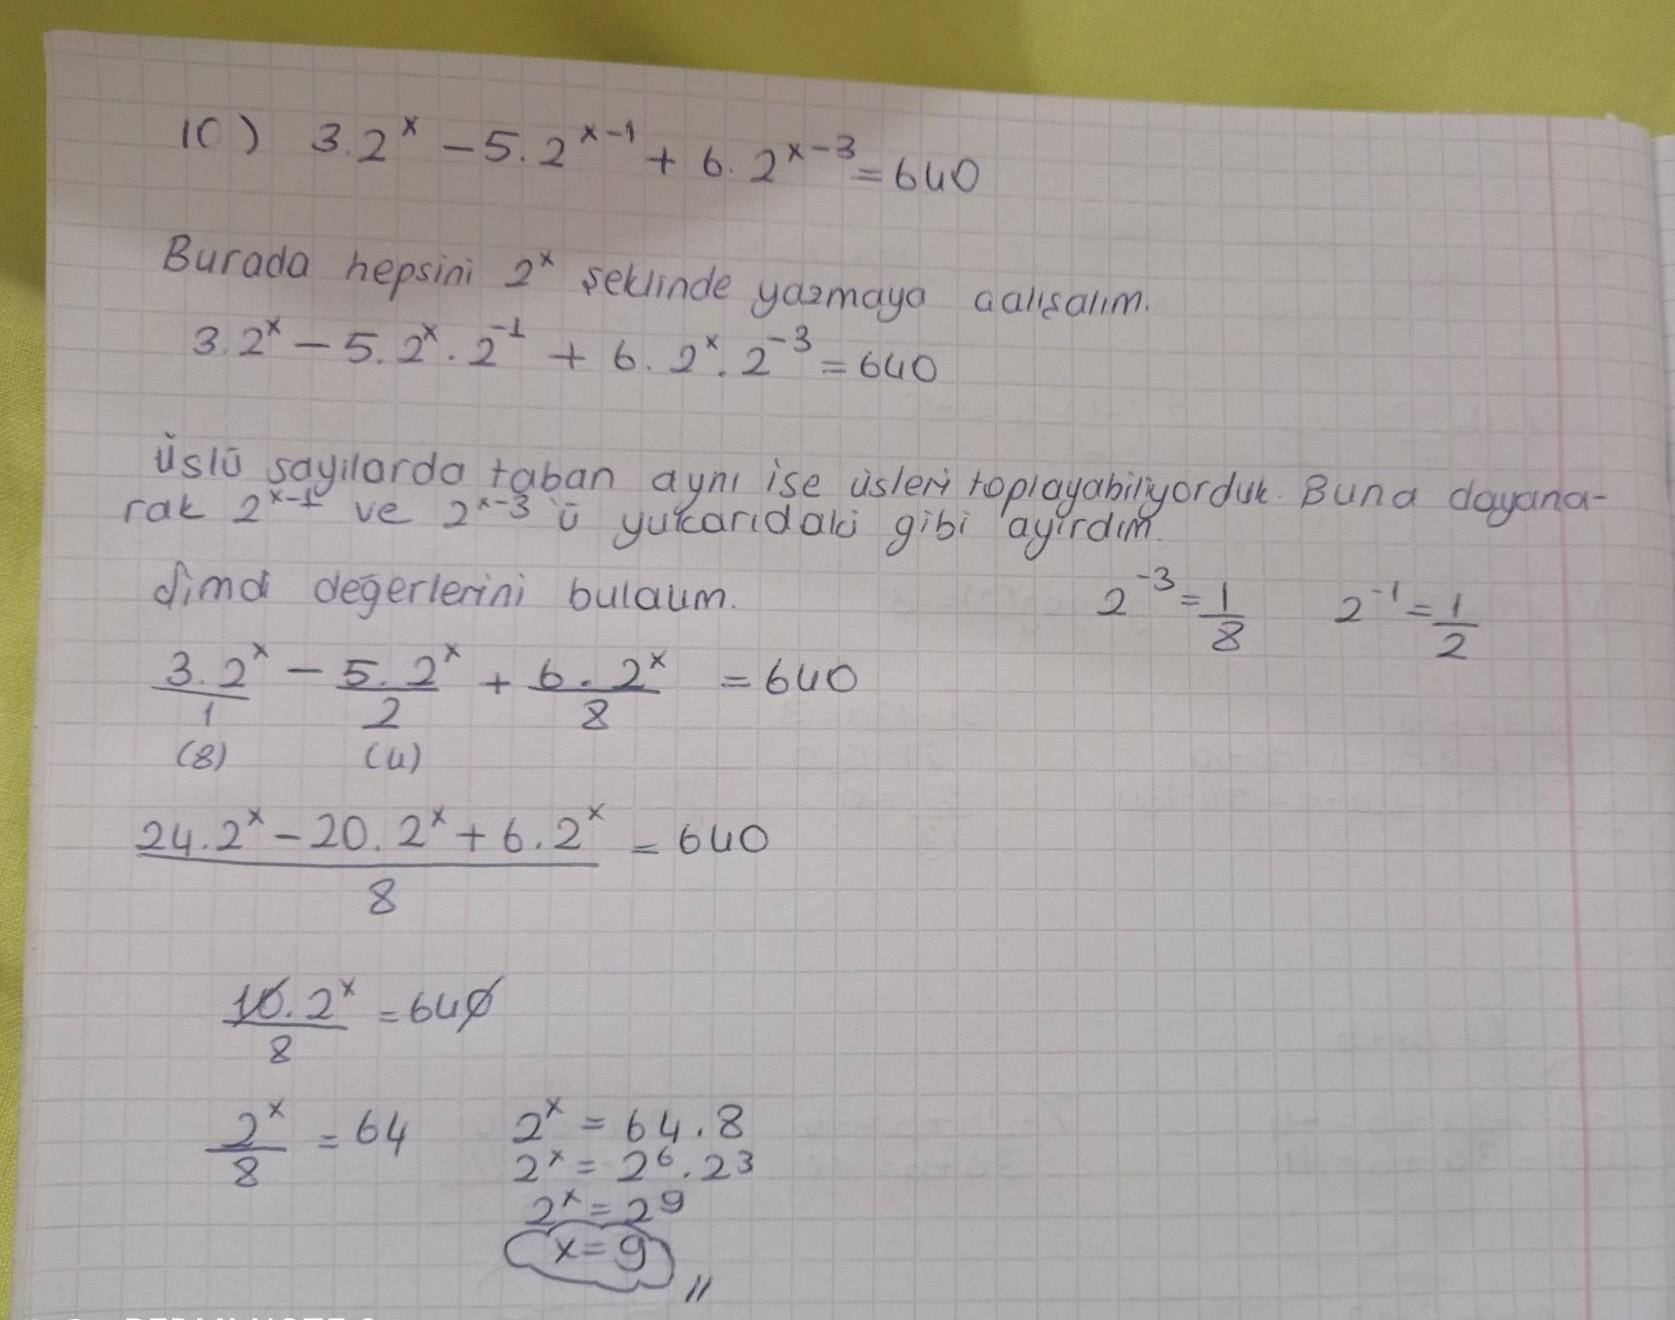 10) 3.2^x - 5.2^(x-1) + 6.2^(x-3) = 640
Burada hepsini 2^x şeklinde yazmaya çalışalım.
3.2^x - 5.2^x.2^-1 + 6.2^x.2^-3 = 640
üslü sayılarda taban aynı ise üsleri toplayabiliyorduk. Buna dayana-
rak 2^(x-1) ve 2^(x-3)'ü yukarıdaki gibi ayırdım.
Şimdi değerlerini bulalım. 2^-3 = 1/8 2^-1 = 1/2
3.2^x/1 - 5.2^x/2 + 6.2^x/8 = 640
(8) (4)
(24.2^x - 20.2^x + 6.2^x)/8 = 640
10.2^x/8 = 640
2^x/8 = 64 2^x = 64.8
2^x = 2^6.2^3
2^x = 2^9
x = 9 //